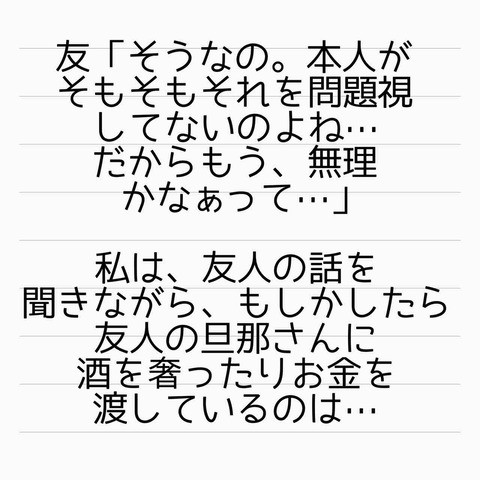 友「そうなの。本人が
そもそもそれを問題視
してないのよね…
だからもう、無理
かなぁって…」
私は、友人の話を
聞きながら、もしかしたら
友人の旦那さんに
酒を奢ったりお金を
渡しているのは…